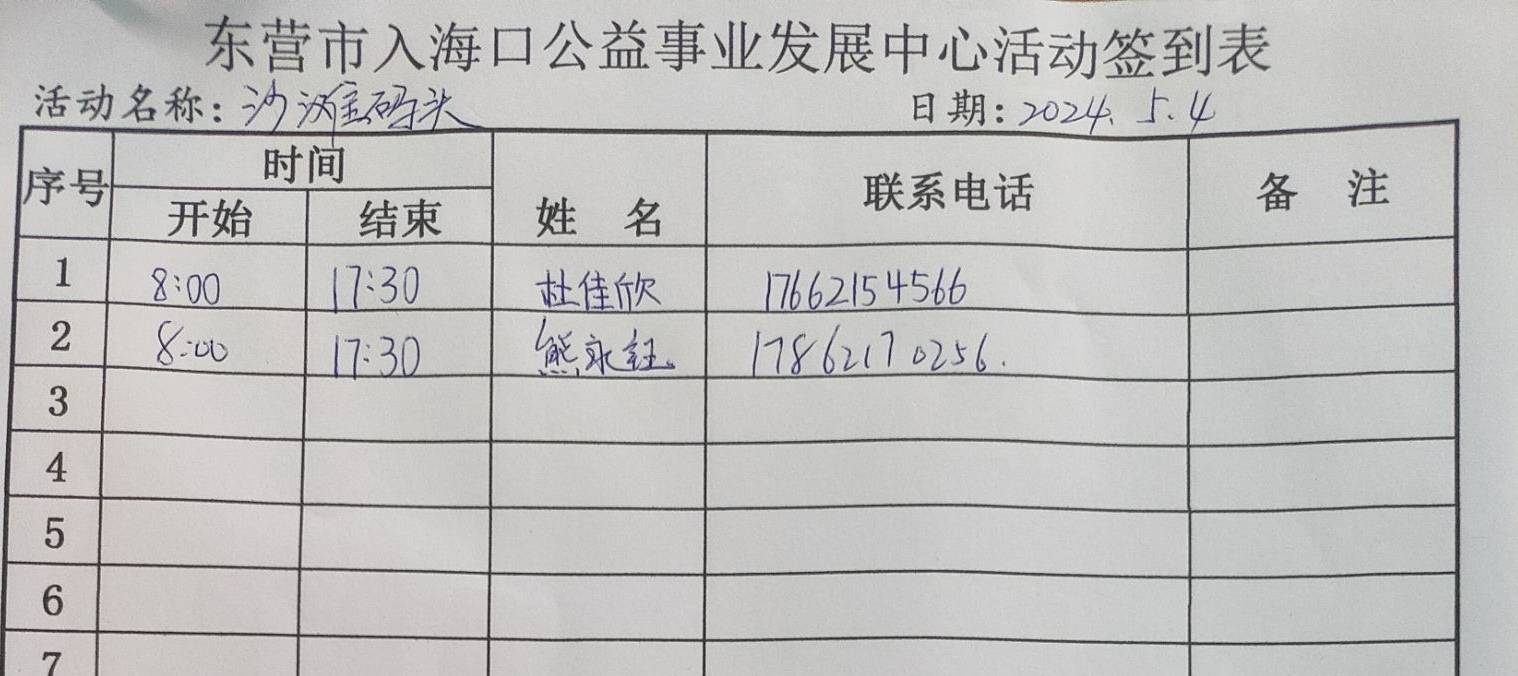 东营市入海口公益事业发展中心活动签到表
活动名称：沙滩码头 日期：2024.5.4
序号 时间 姓名 联系电话 备注
开始 结束
1 8:00 17:30 杜佳欣 17662154566
2 8:00 17:30 熊永钰 17862170256.
3
4
5
6
7